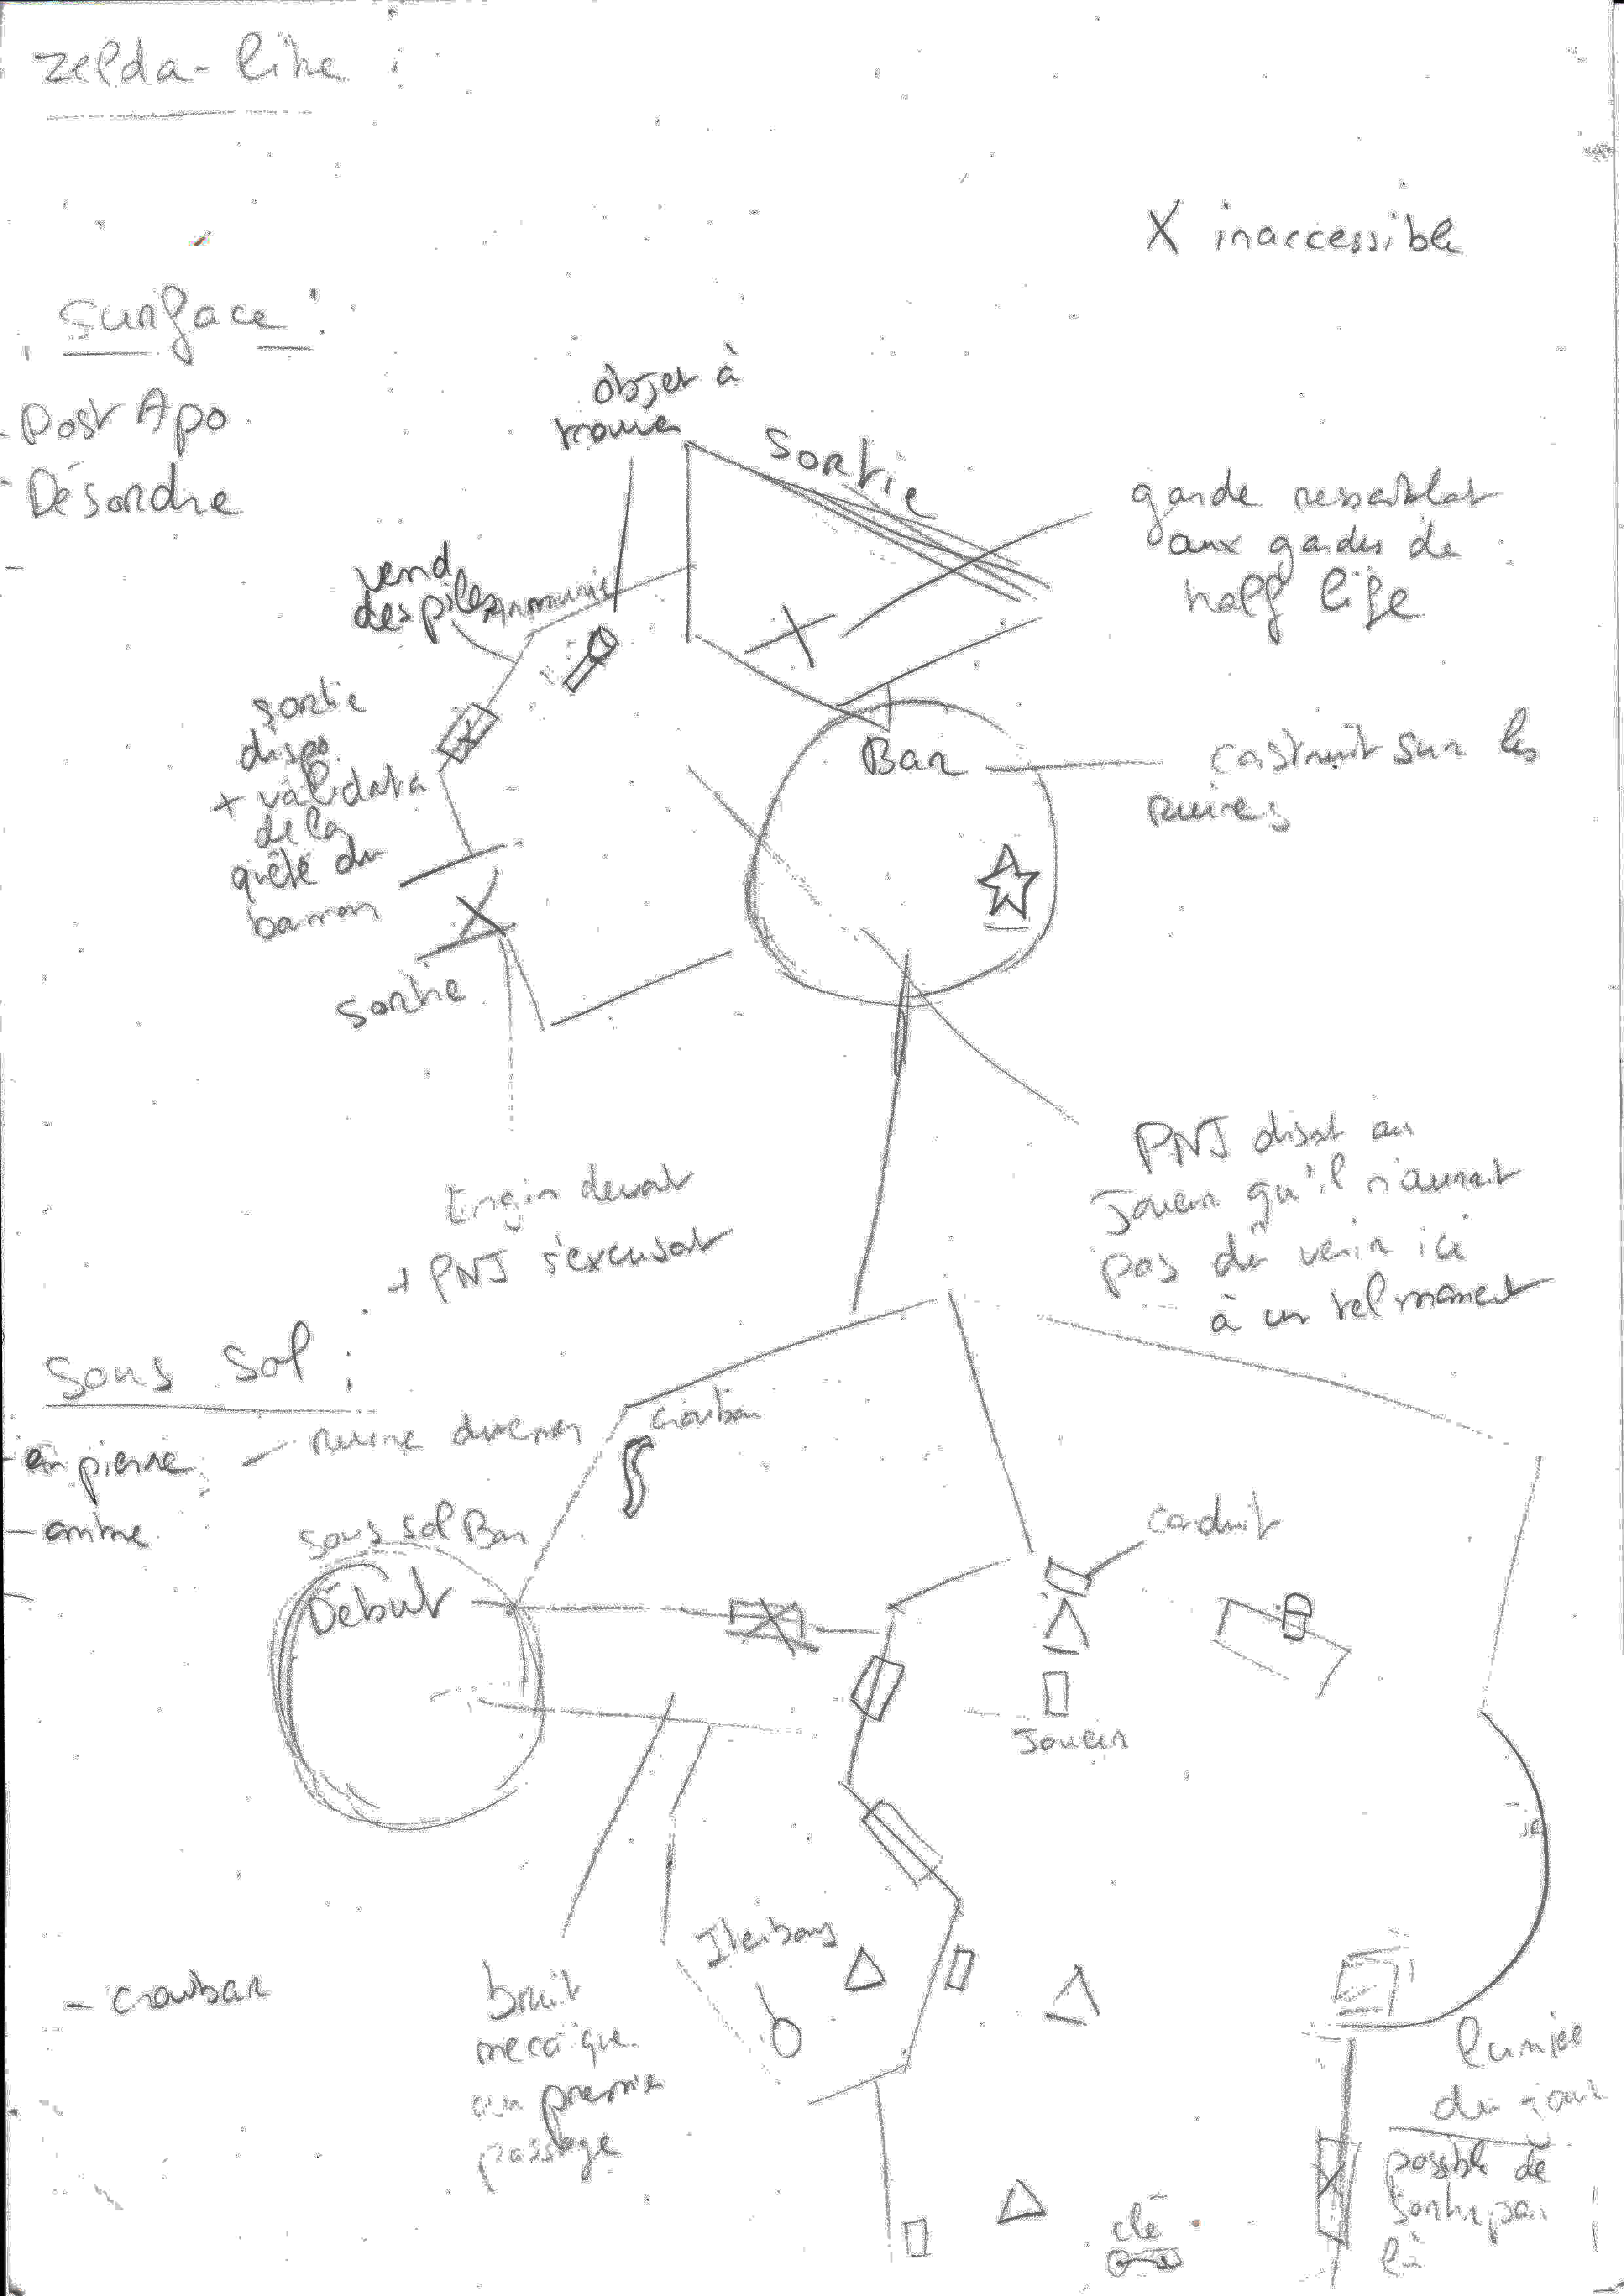 zelda-like :
X inaccessible
Surface :
- Post Apo
- Désordre
objet à
trouver
Sortie
garde ressemblant
aux gardes de
half life
vend
des piles
sortie
dispo
+ validata
de la
quête du
barman
Sortie
Bar
construit sur les
ruines
Engin devant
+ PNJ s'excusant
PNJ disant au
Joueur qu'il n'aurait
pas dû venir ici
à un tel moment
Sous Sol :
- en pierre
- ruine
- ombre
crowbar
Sous Sol Bar
Début
conduit
Joueur
- crowbar
bruit
mecanique
au premier
passage
lumière
du jour
possible de
sortir par
là
clé